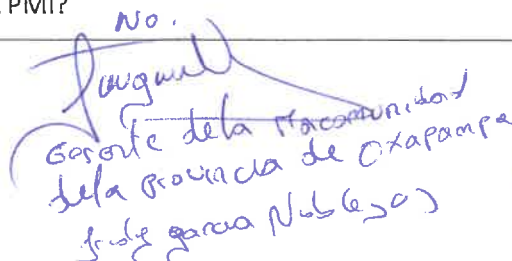 PMI?
No.
Gerente de la Macomunidad
de la provincia de Oxapampa
garcia